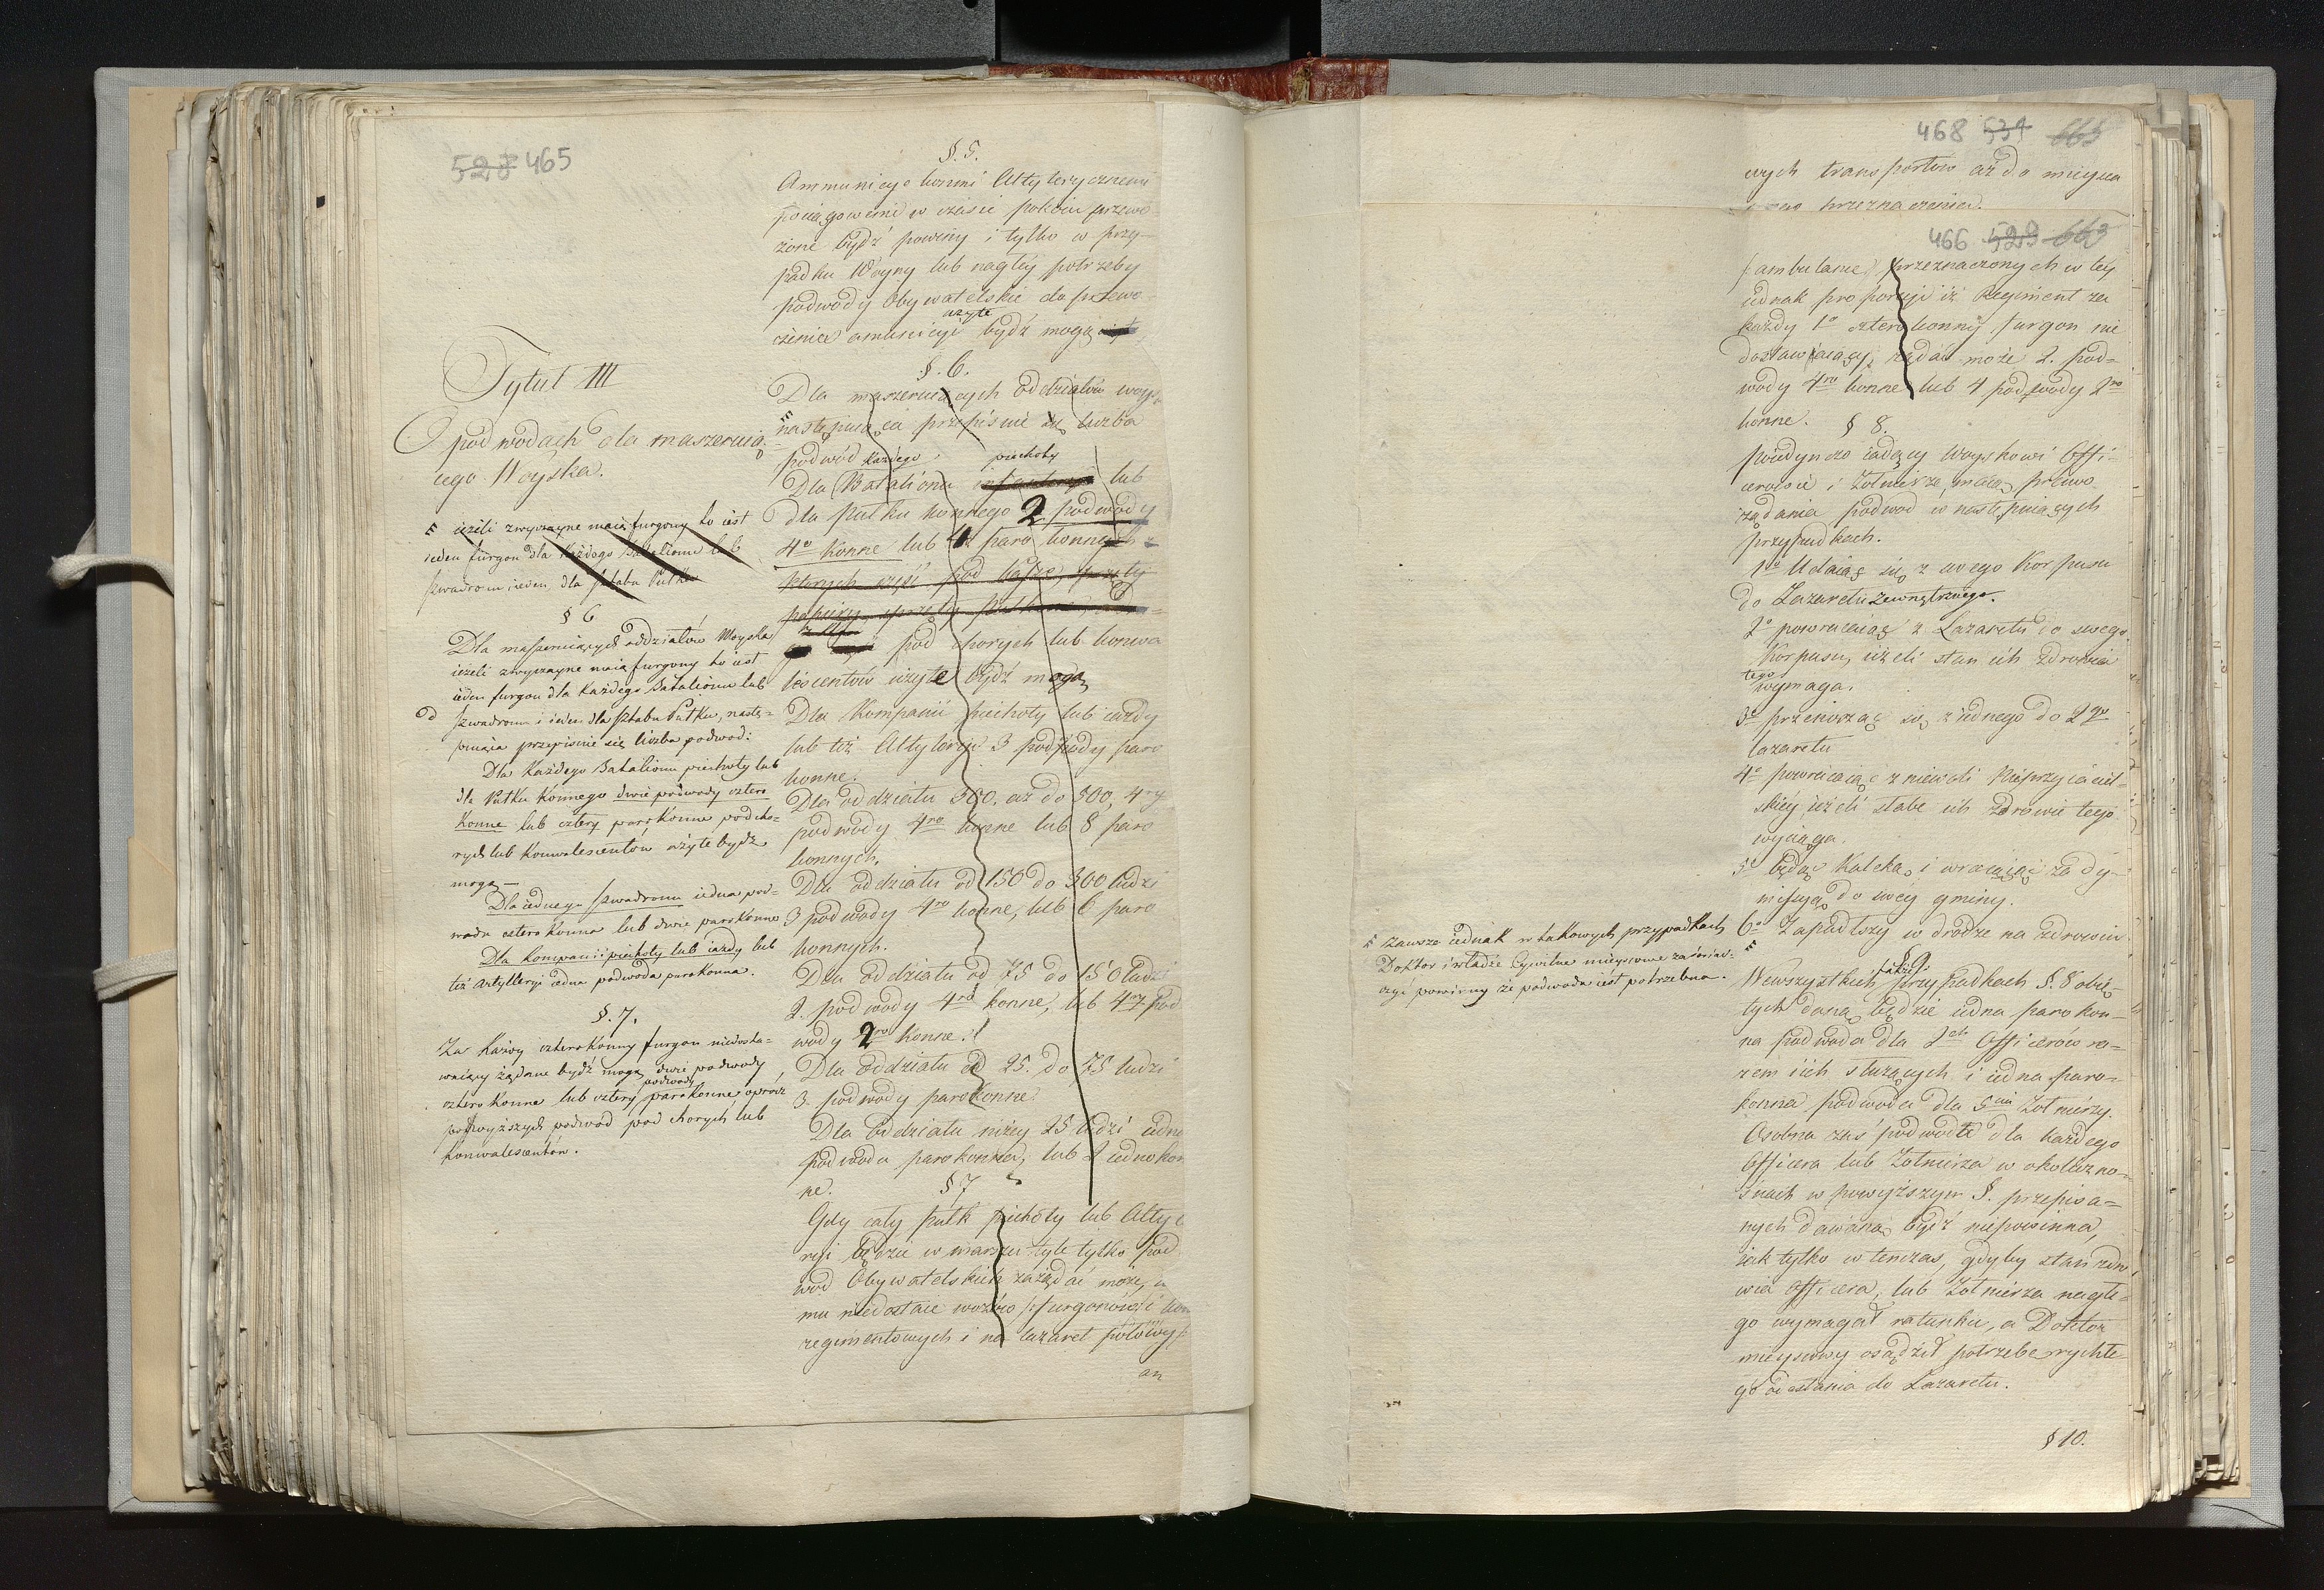 528 465
§. 5.
Ammunicye konmi Artylerycznemi
pociągowemi w czasie pokoiu przewo-
żone bydź powiny i tylko w przy-
padku Woyny lub nagłey potrzeby
podwody Obywatelskie do przewo-
żenia amunicyi użyte bydź mogą
Tytuł III
O podwodach dla maszeruią-
cego Woyska.
jeżeli zwyczayne maią furgony to iest
ieden furgon dla Każdego Batalionu lub
szwadronu, ieden dla sztabu Pułku
§ 6
Dla maszeruiących oddziałów Woyska
ieżeli zwyczayne maią furgony to iest
ieden furgon dla Każdego Batalionu lub
szwadronu i ieden dla sztabu Pułku, nastę-
puiąca przepisuie się liczba podwod:
Dla Każdego Batalionu piechoty lub
dla Pułku Konnego dwie podwody cztero
Konne lub cztery parokonne pod cho-
rych lub Konwalescentów użyte bydź
mogą —
Dla iednego szwadronu iedna pod-
woda czterokonna lub dwie parokonne
Dla Kompanii piechoty lub iazdy lub
też Artylleryi iedna podwoda parokonna.
§. 7.
Za Każdy czterokonny furgon niedosta-
waiący żądane bydź mogą dwie podwody
cztero Konne lub cztery podwody parokonne oprócz
powyższych podwod pod chorych lub
konwalescentów.
§. 6.
Dla maszeruiących oddziałów woys-
następuiąca przepisuie się liczba
podwód każdego piechoty
Dla Batalionu infanteryi lub
dla pułku konnego 2 podwody
4o Konne lub 4 paro konnych z
których część pod bagaże, sprzęty
pod chorych lub konwa
lescentów użyte bydź mogą
Dla Kompanii piechoty lub iazdy
lub też Artyleryi 3 podwody paro
konne.
Dla oddziału 300. aż do 500, 4ry
podwody 4ro konne lub 8 paro
konnych.
Dla oddziału od 150 do 300 ludzi
3 podwody 4ro konne, lub 6 paro
konnych.
Dla oddziału od 75 do 150 ludzi
2. podwody 4ro konne, lub 4ry pod
wody 2ro Konne.
Dla oddziału od 25. do 75 ludzi
3. podwody parokonne
Dla oddziału niżey 25 ludzi iedna
podwoda parokonna, lub 2 iednokon
ne.
§ 7
Gdy cały pułk piechoty lub Artyl
ryi będzie w marszu tyle tylko pod
wod Obywatelskich zażądać może, ile
mu niedostaie wozów furgonów
regimentowych i na lazaret polowy
an
468 531 665
wych transportow aż do mieysca
przeznaczenia.
466 529 663
(ambulanse) przeznaczonych w tey
iednak proporcyi iż Regiment za
każdy 1o czterokonny furgon nie
dostawaiący, żądać może 2. pod-
wody 4ro konne lub 4 podwody 2ro
konne.
§ 8.
poiedynczo iadący Woyskowi Offi-
cerowie i Żołnierze, maią prawo
żądania podwod w następuiących
przypadkach.
1mo Udaiąc się z swego Korpusu
do Lazaretu zewnętrznego.
2o powracaiąc z Lazaretu do swego
Korpusu, ieżeli stan ich zdrowia
tego wymaga.
3o przenosząc się z iednego do 2go
lazaretu
4o powracaiąc z niewoli Nieprzyiaciel-
skiey, ieżeli słabe ich zdrowie tego
wyciąga.
5o będąc Kaleką i wracaiąc za dy-
missyą do swey gminy.
6o Zapadłszy w drodze na zdrowiu
zawsze iednak w takowych przypadkach
Doktor i władze Cywilne mieyscowe zaświad-
czyć powinny że podwoda iest potrzebna.
§ 9
We wszystkich przypadkach §. 8 obię-
tych daną będzie iedna parokon-
na podwoda dla 2ch Officerów ra-
zem i ich służących i iedna paro-
konna podwoda dla 5ciu Żołnierzy.
Osobna zaś podwoda dla każdego
Officera lub Żołnierza w okoliczno-
ściach w powyższym §. przepisa-
nych dawaną bydź niepowinna,
iak tylko w tenczas, gdyby stan zdro-
wia Officera, lub Żołnierza nagłe-
go wymagał ratunku, a Doktor
mieyscowy osądził potrzebę rychłe-
go odesłania do Lazaretu.
§ 10.